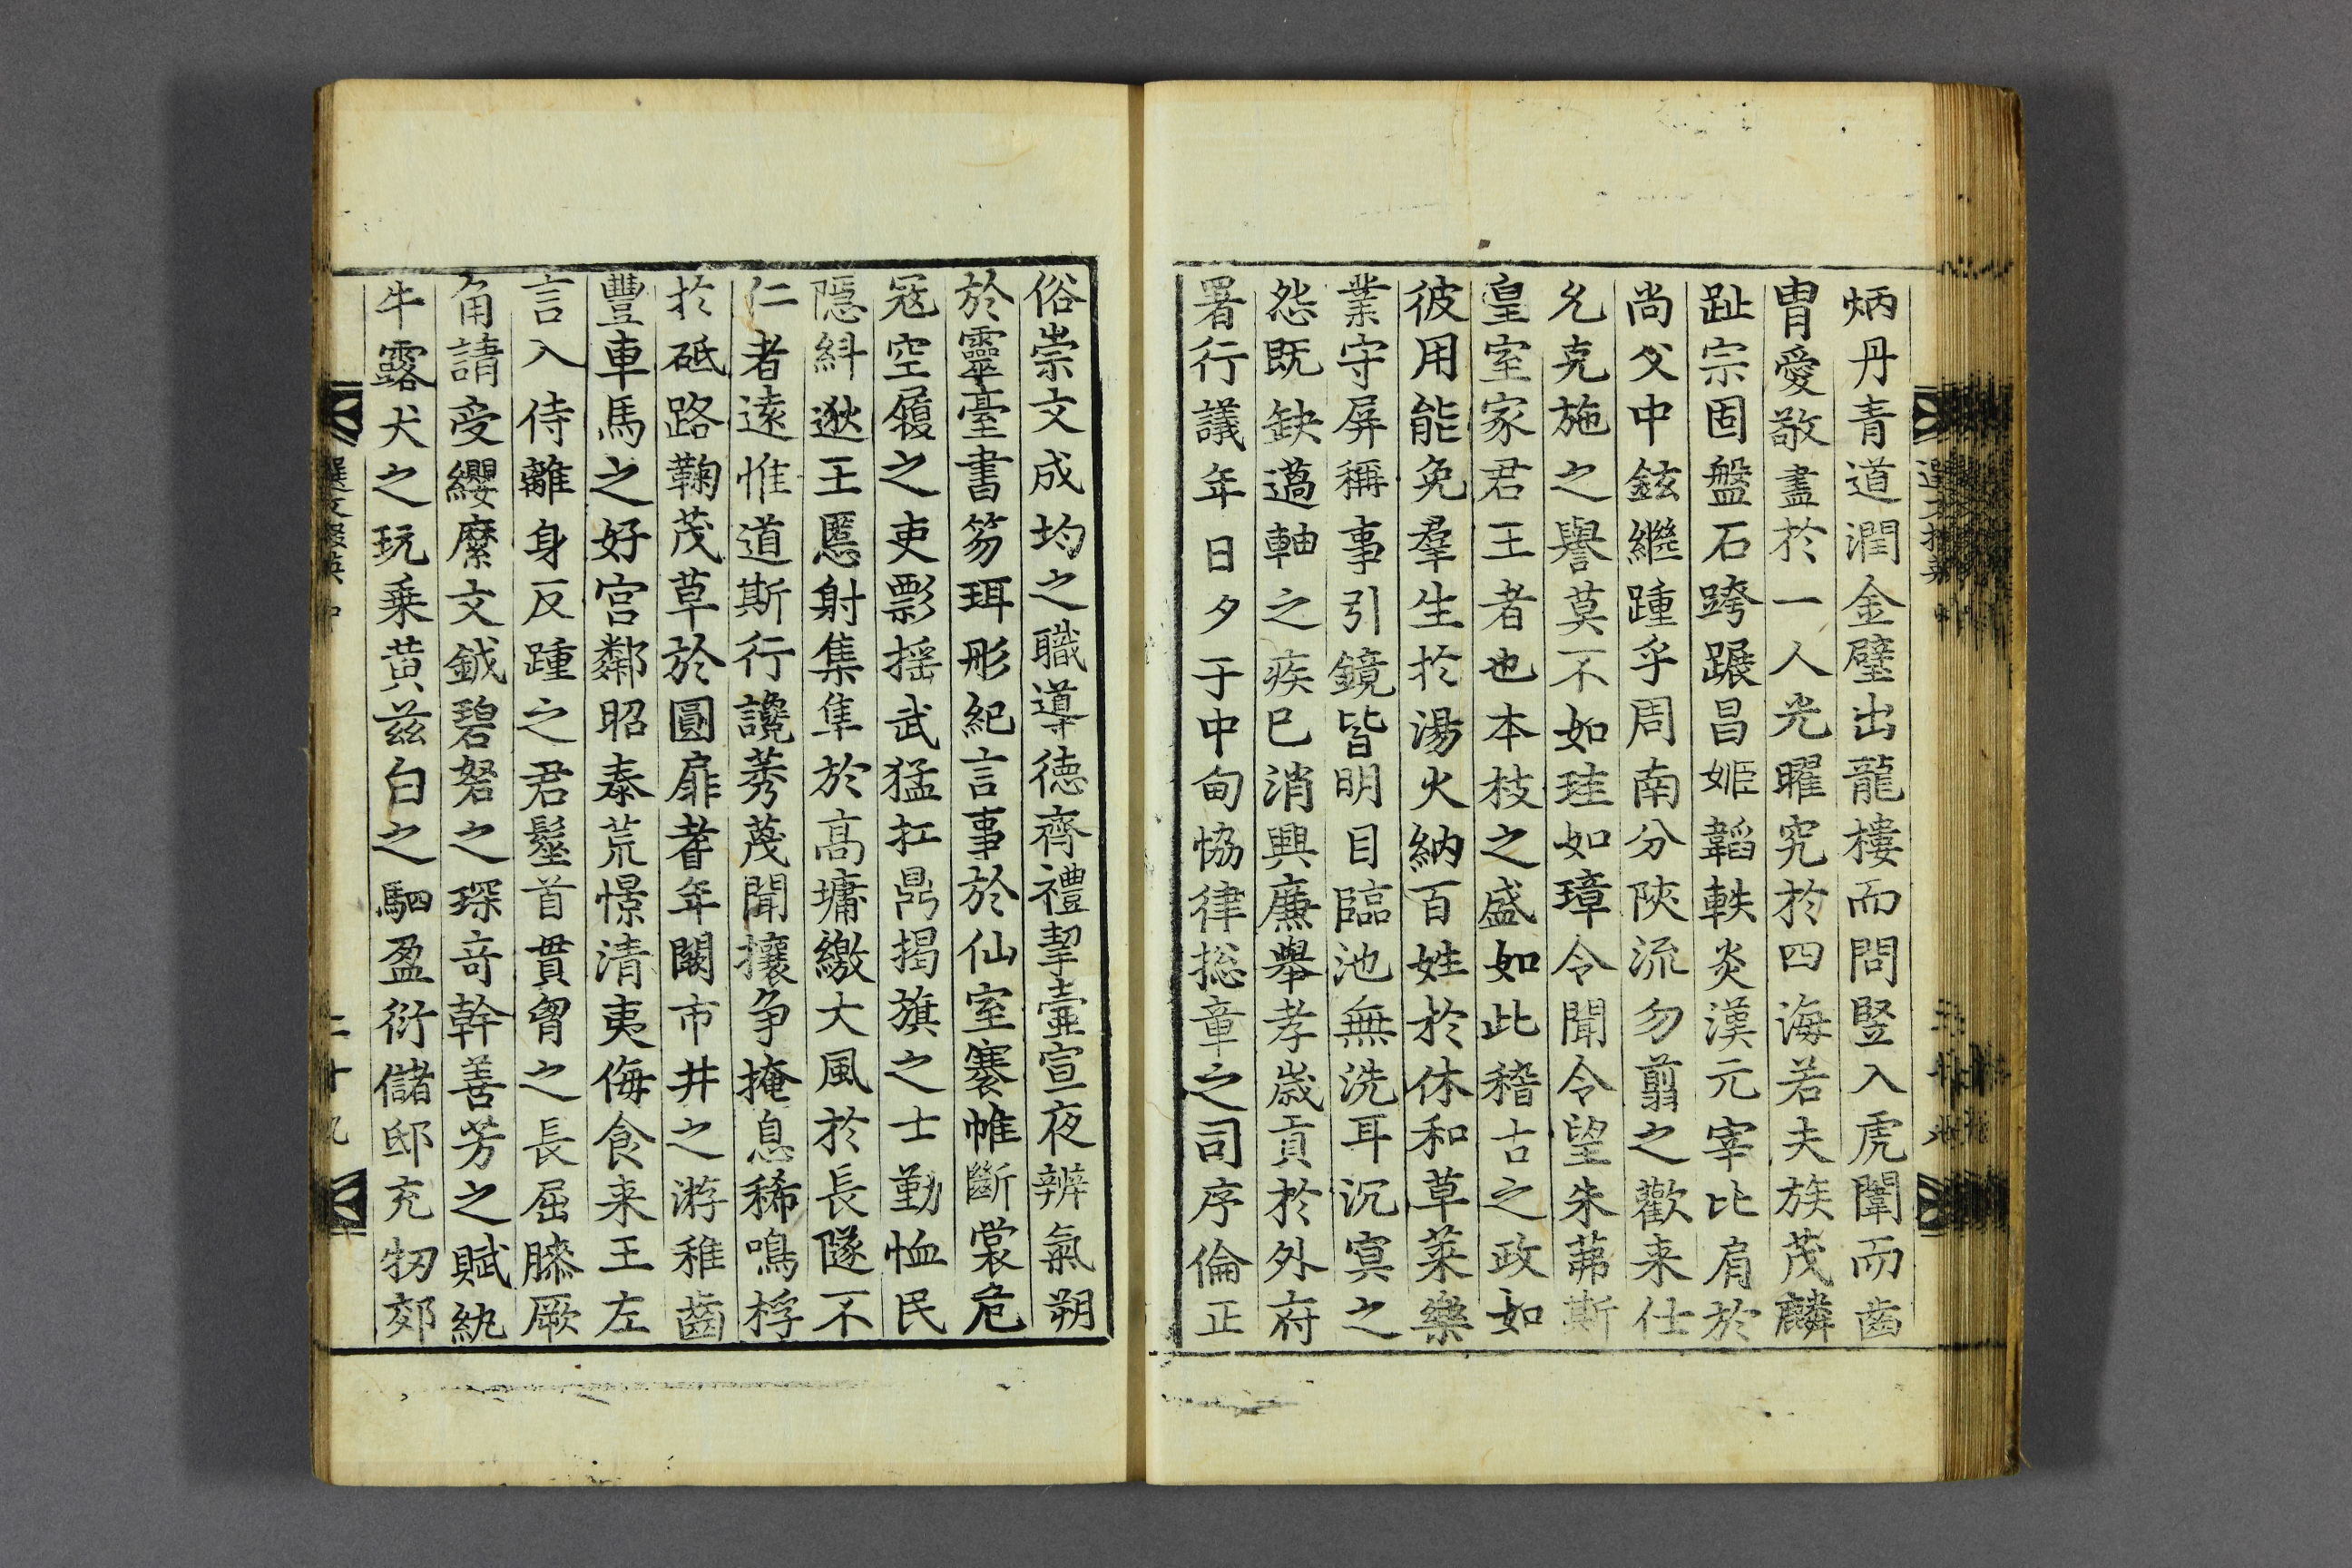 炳丹青道潤金璧出龍樓而問竪入虎闈而齒
胄愛敬盡於一人光曜究於四海若夫族茂麟
趾宗固盤石跨蹍昌姬韜軼炎漢元宰比肩於
尚父中鉉繼踵乎周南分陝流勿翦之歡来仕
允克施之譽莫不如珪如璋令聞令望朱茀斯
皇室家君王者也本枝之盛如此稽古之政如
彼用能免羣生於湯火納百姓於休和草萊樂
業守屏稱事引鏡皆明目臨池無洗耳沉㝠之
怨既缺薖軸之疾已消興廉舉孝歳貢於外府
署行議年日夕于中甸恊律揔章之司序倫正
俗崇文成均之職導徳齊禮挈壷宣夜辨氣朔
於靈臺書笏珥彤紀言事於仙室褰帷斷裳危
冠空履之吏彯摇武猛扛鼎揭旗之士勤恤民
隱糾逖王慝射集隼於高墉繳大風於長隧不
仁者逺惟道斯行讒莠蔑聞攘争掩息稀鳴桴
於砥路鞠茂草於圓扉耆年闕市井之游稚齒
豐車馬之好宫鄰昭泰荒憬清夷侮食来王左
言入侍離身反踵之君髽首貫胷之長屈膝厥
角請受纓縻文鉞碧砮之琛竒幹善芳之賦紈
牛露犬之玩乗黄兹白之駟盈衍儲邸充牣郊
選文掇英 中
二十九